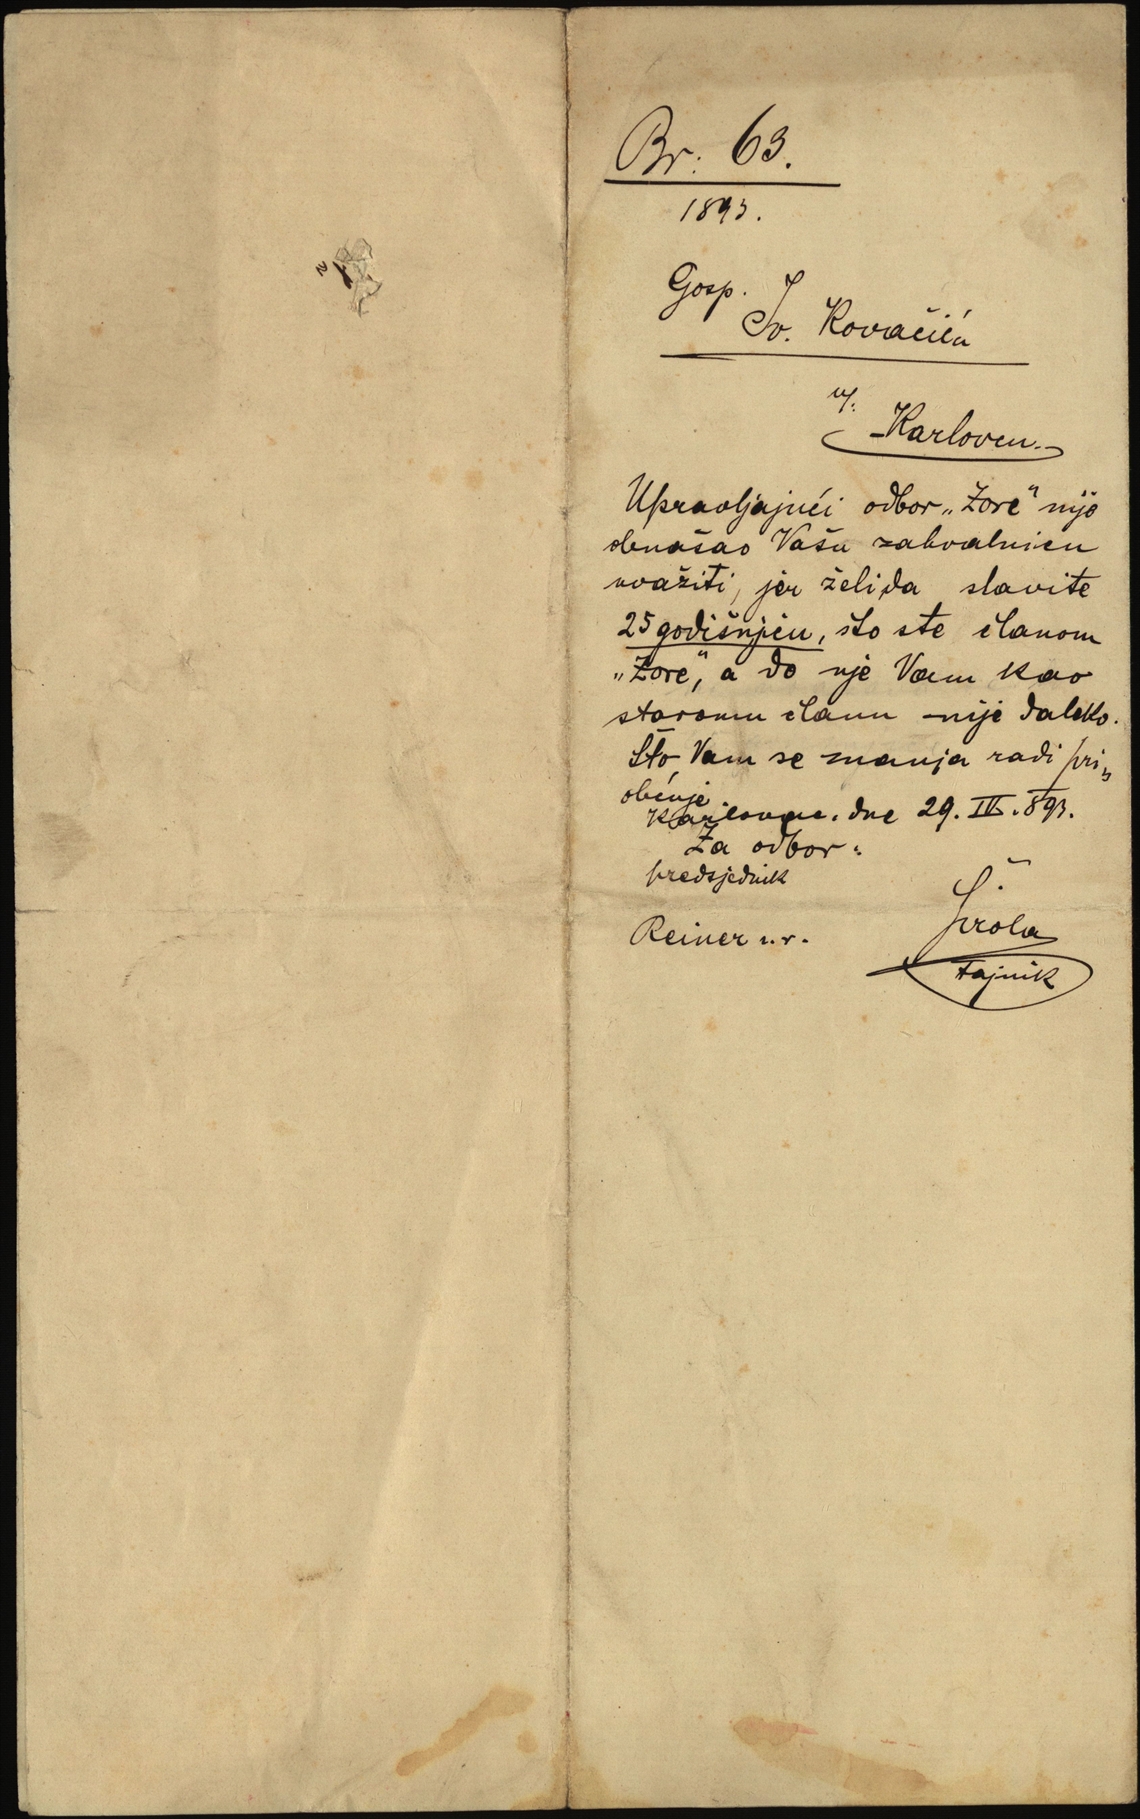 Br. 63.
1893.
Gosp.
Iv. Kovačiću
u
Karlovcu.
Upravljajući odbor „Zore“ nije
obnašao Vašu zahvalnicu
uvažiti, jer želi da slavite
25 godišnjicu, što ste članom
„Zore“, a do nje Vam kao
staromu članu nije daleko.
Što Vam se znanja radi pri„
obćuje
Karlovac. dne 29. IV. 893.
Za odbor:
predsjednik
Reiner v. r.
Širola
tajnik